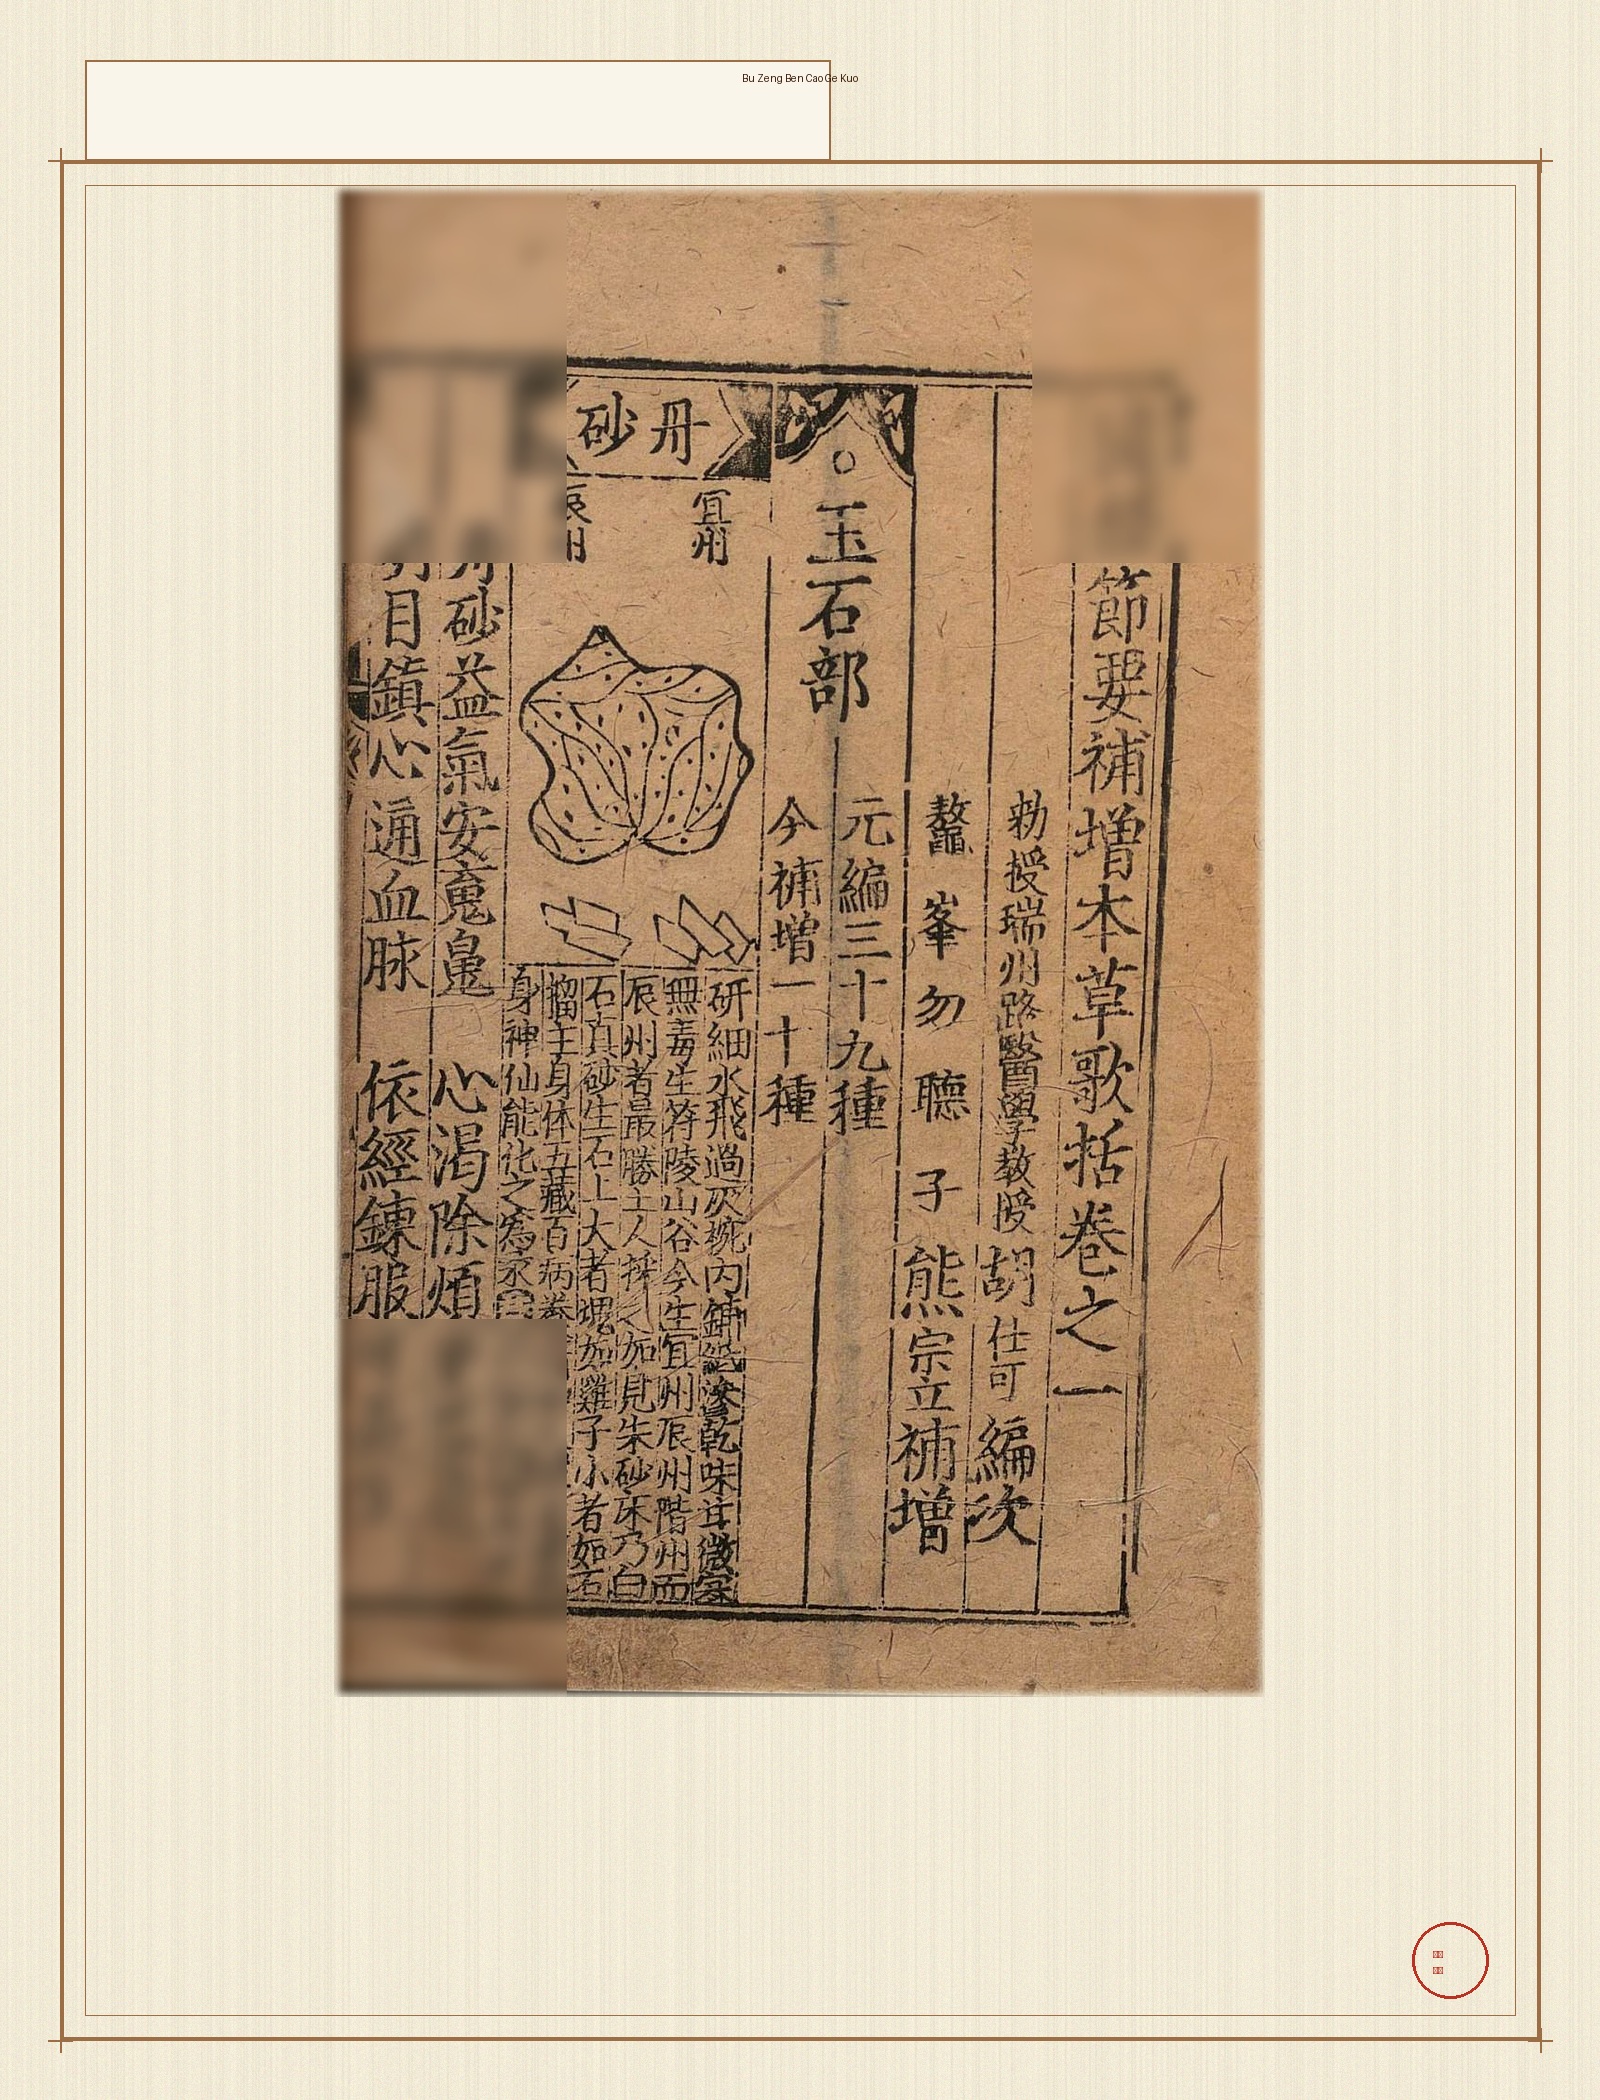 Bu Zeng Ben Cao Ge Kuo
節要補增本草歌括卷之一
勑授瑞州路醫學教授胡仕可編次
鼇峯勿聽子熊宗立補增
玉石部
元編三十九種
今補增一十種
丹砂
宜州
辰州
研細水飛過灰椀內鋪紙滲乾味甘微寒
無毒生符陵山谷今生宜州辰州階州而
辰州者最勝土人採之如見朱砂床乃白
石真砂生石上大者塊如雞子小者如石
榴主身体五藏百病養
身神仙能化之為汞
丹砂益氣安䰟䰠 心渴除煩
明目鎮心通血脉 依經鍊服